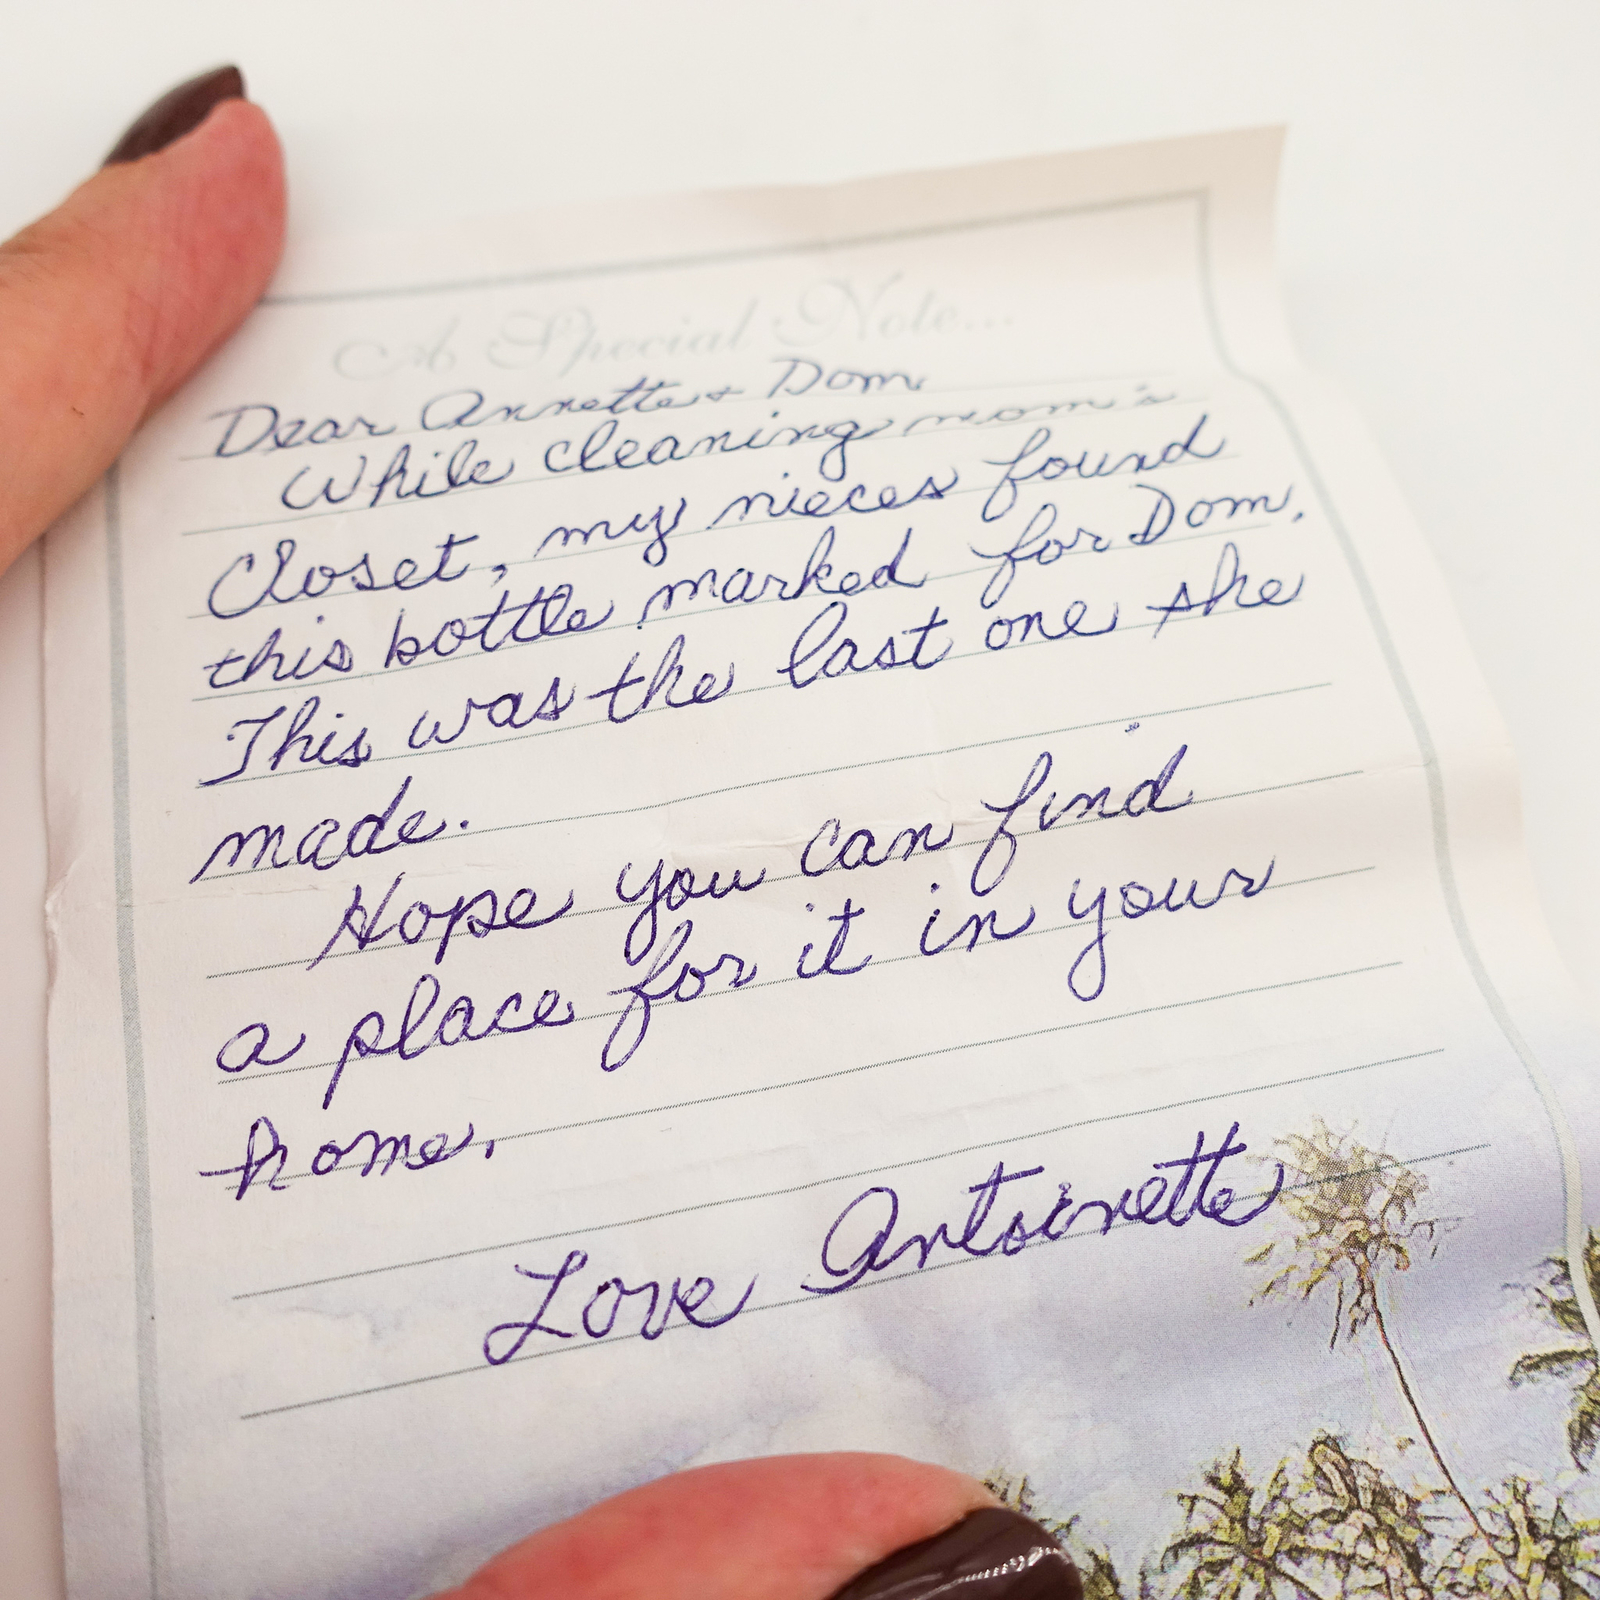 A Special Note...
Dear Annette + Dom
While cleaning mom's
Closet, my nieces found
this bottle marked for Dom.
This was the last one she
made.
Hope you can find
a place for it in your
home.
Love Antoinette